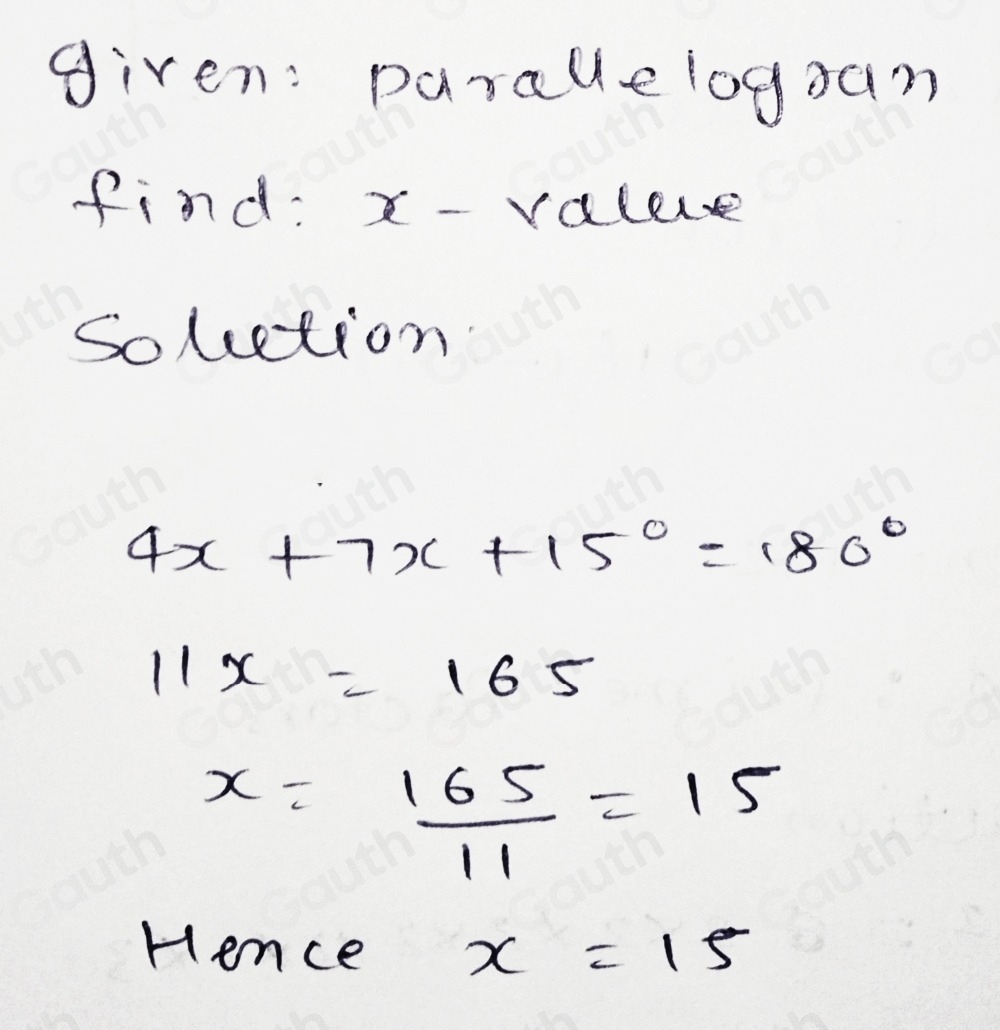 given: parallelogran
find: x - value
Solution
4x + 7x + 15° = 180°
11x = 165
x = 165/11 = 15
Hence x = 15